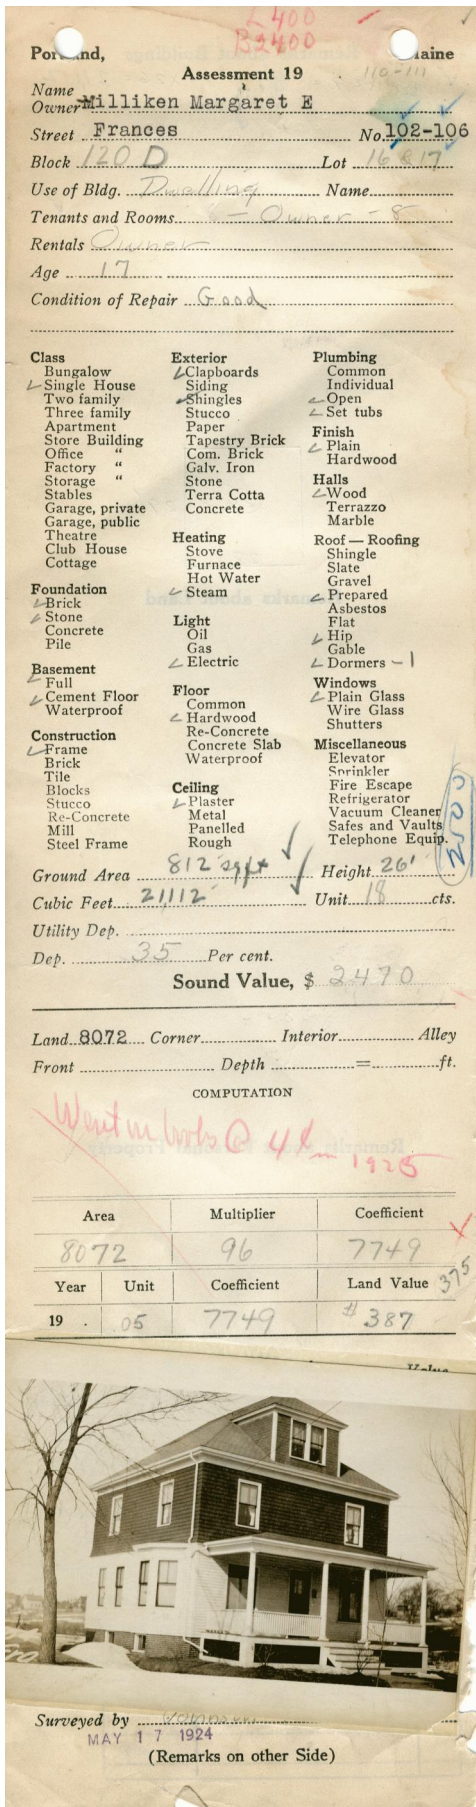 L 400
B 2400
Portland, Maine
Assessment 19
110-111
Name
Owner Milliken Margaret E
Street Frances No. 102-106
Block 120 D Lot 16 & 17
Use of Bldg. Dwelling Name
Tenants and Rooms - Owner - 8
Rentals Owner
Age 17
Condition of Repair Good
Class
Bungalow
Single House
Two family
Three family
Apartment
Store Building
Office "
Factory "
Storage "
Stables
Garage, private
Garage, public
Theatre
Club House
Cottage
Foundation
Brick
Stone
Concrete
Pile
Basement
Full
Cement Floor
Waterproof
Construction
Frame
Brick
Tile
Blocks
Stucco
Re-Concrete
Mill
Steel Frame
Exterior
Clapboards
Siding
Shingles
Stucco
Paper
Tapestry Brick
Com. Brick
Galv. Iron
Stone
Terra Cotta
Concrete
Heating
Stove
Furnace
Hot Water
Steam
Light
Oil
Gas
Electric
Floor
Common
Hardwood
Re-Concrete
Concrete Slab
Waterproof
Ceiling
Plaster
Metal
Panelled
Rough
Plumbing
Common
Individual
Open
Set tubs
Finish
Plain
Hardwood
Halls
Wood
Terrazzo
Marble
Roof — Roofing
Shingle
Slate
Gravel
Prepared
Asbestos
Flat
Hip
Gable
Dormers - 1
Windows
Plain Glass
Wire Glass
Shutters
Miscellaneous
Elevator
Sprinkler
Fire Escape
Refrigerator
Vacuum Cleaner
Safes and Vaults
Telephone Equip.
2500
Ground Area 812 sq ft Height 26'
Cubic Feet 21112 Unit 18 cts.
Utility Dep.
Dep. 35 Per cent.
Sound Value, $ 2470
Land 8072 Corner Interior Alley
Front Depth = ft.
COMPUTATION
Went on books @ 4¢ in 1925
Area Multiplier Coefficient
8072 96 7749
375
Year Unit Coefficient Land Value
19 . .05 7749 # 387
Value
Surveyed by
MAY 17 1924
(Remarks on other Side)